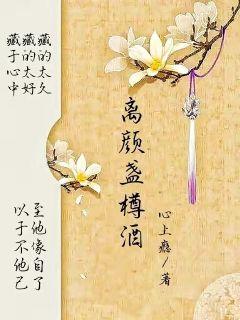 藏的太久
藏的太好
藏于心中
以至
于他
不像
他自
己了
离颜盏樽酒
心上瘾/著